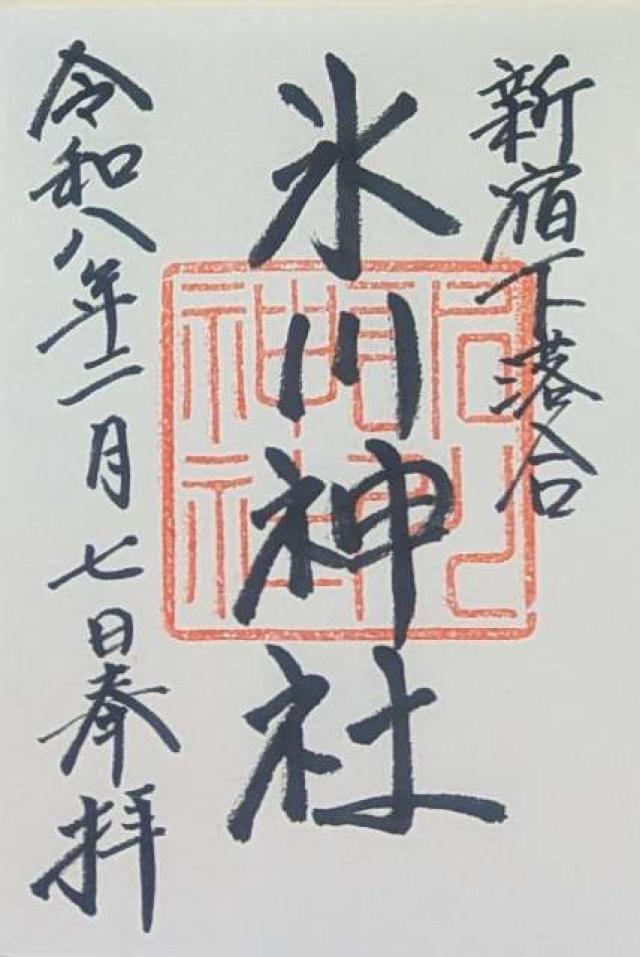 新宿下落合
氷川神社
令和八年二月七日奉拝